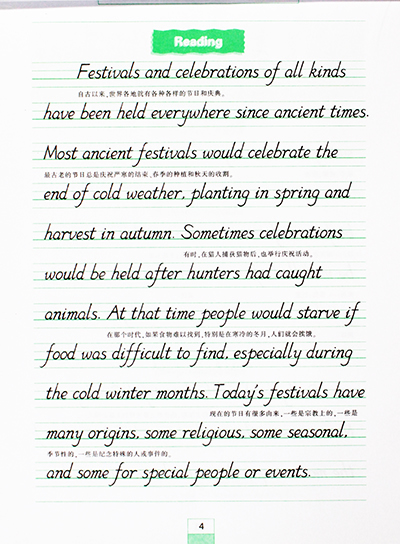 Reading
Festivals and celebrations of all kinds
自古以来,世界各地就有各种各样的节日和庆典。
have been held everywhere since ancient times.
Most ancient festivals would celebrate the
最古老的节日总是庆祝严寒的结束、春季的种植和秋天的收割。
end of cold weather, planting in spring and
harvest in autumn. Sometimes celebrations
有时,在猎人捕获猎物后,也举行庆祝活动。
would be held after hunters had caught
animals. At that time people would starve if
在那个时代,如果食物难以找到,特别是在寒冷的冬月,人们就会挨饿。
food was difficult to find, especially during
the cold winter months. Today's festivals have
现在的节日有很多由来,一些是宗教上的,一些是
many origins, some religious, some seasonal,
季节性的,一些是纪念特殊的人或事件的。
and some for special people or events.
4